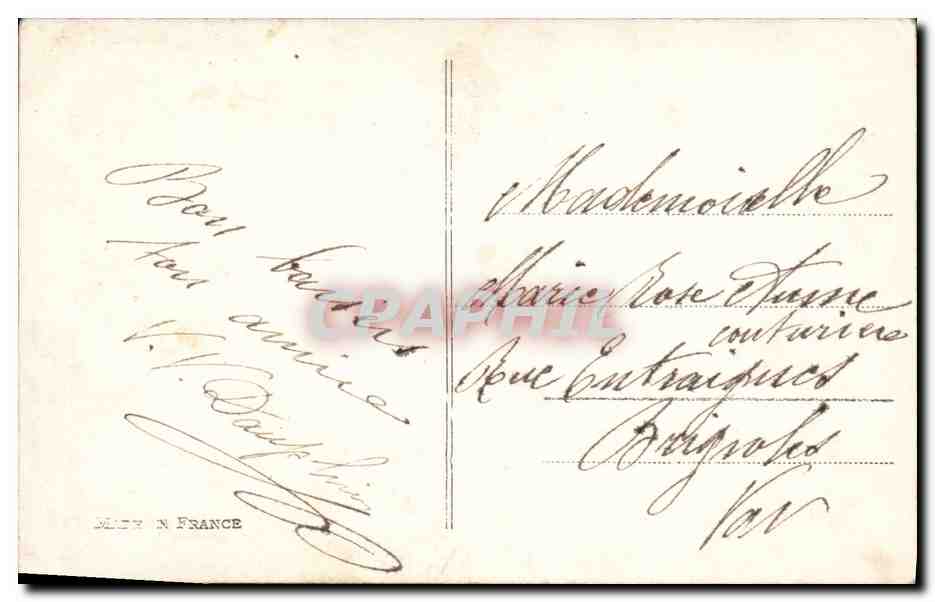 Bons baisers
ton amie
V. V. Dauphin
MADE IN FRANCE
Mademoiselle
Marie Rose Aune
couturière
Rue Entraigues
Brignoles
Var
CPAPHIL